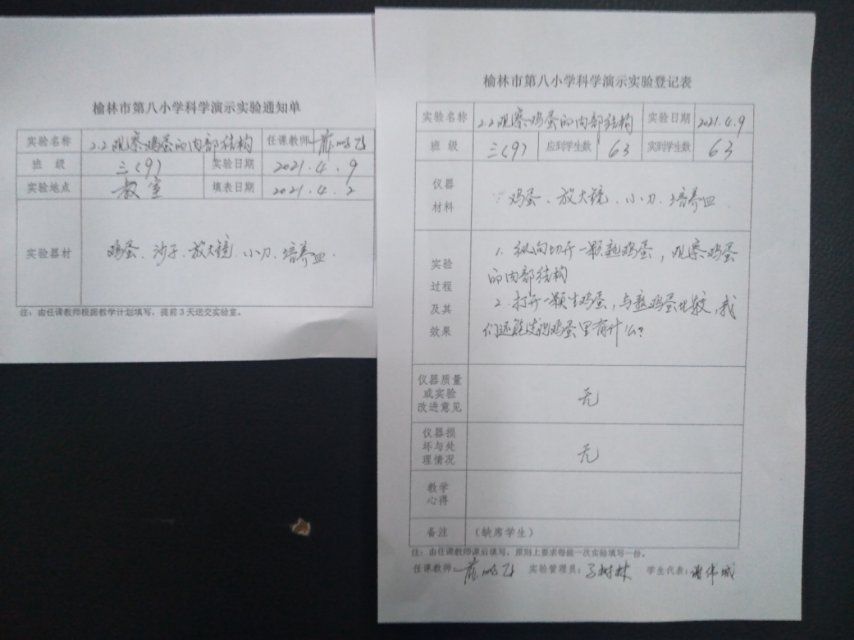 榆林市第八小学科学演示实验通知单
实验名称 2.2观察鸡蛋的内部结构 任课教师
班 级 三(9) 实验日期 2021.4.9
实验地点 教室 填表日期 2021.4.2
实验器材 鸡蛋、沙子、放大镜、小刀、培养皿.
注:由任课教师根据教学计划填写,提前3天送交实验室。
榆林市第八小学科学演示实验登记表
实验名称 2.2观察鸡蛋的内部结构 实验日期 2021.4.9
班 级 三(9) 应到学生数 63 实到学生数 63
仪器
材料
鸡蛋、放大镜、小刀、培养皿.
实验
过程
及其
效果
1. 纵向切开一颗熟鸡蛋,观察鸡蛋
的内部结构
2. 打开一颗生鸡蛋,与熟鸡蛋比较,我
们还能发现鸡蛋里有什么?
仪器质量
或实验
改进意见
无
仪器损
坏与处
理情况
无
教学
心得
备注 (缺席学生)
注:由任课教师课后填写,原则上要求每做一次实验填写一份。
任课教师: 实验管理员: 学生代表:谢伟城